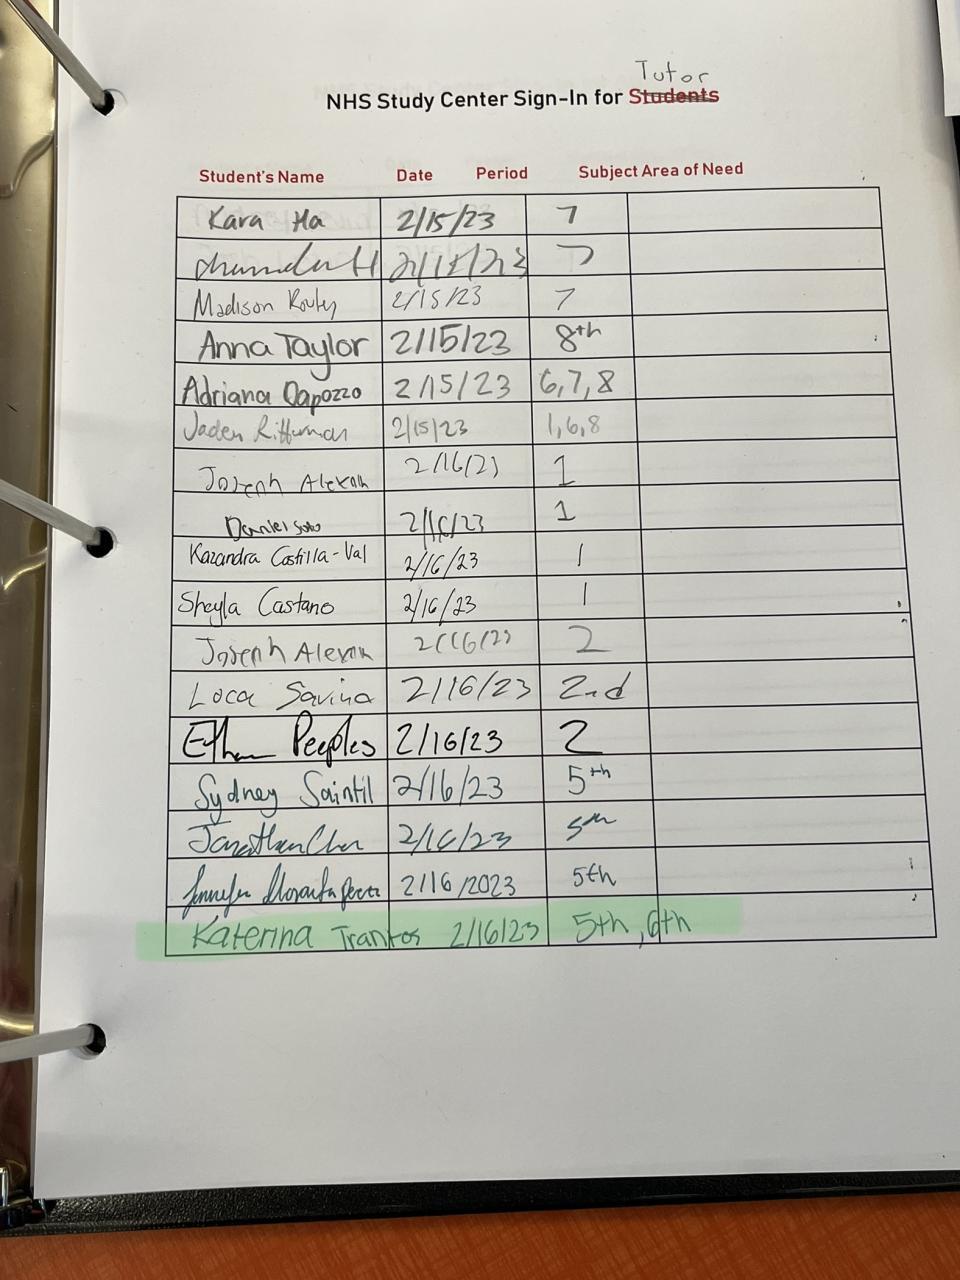 Tutor
NHS Study Center Sign-In for Students
Student's Name Date Period Subject Area of Need
Kara Ha 2/15/23 7
2/15/23 7
Madison 2/15/23 7
Anna Taylor 2/15/23 8th
Adriana Dapozzo 2/15/23 6,7,8
Jaden 2/15/23 1,6,8
Joseph 2/16/23 1
Daniel Soto 2/16/23 1
Kazandra Castilla-Val 2/16/23 1
Sheyla Castano 2/16/23 1
Joseph 2/16/23 2
Luca Savina 2/16/23 2nd
Ethan Peeples 2/16/23 2
Sydney Saintil 2/16/23 5th
Jonathan 2/16/23 5th
Jennifer 2/16/2023 5th
Katerina Trantos 2/16/23 5th, 6th